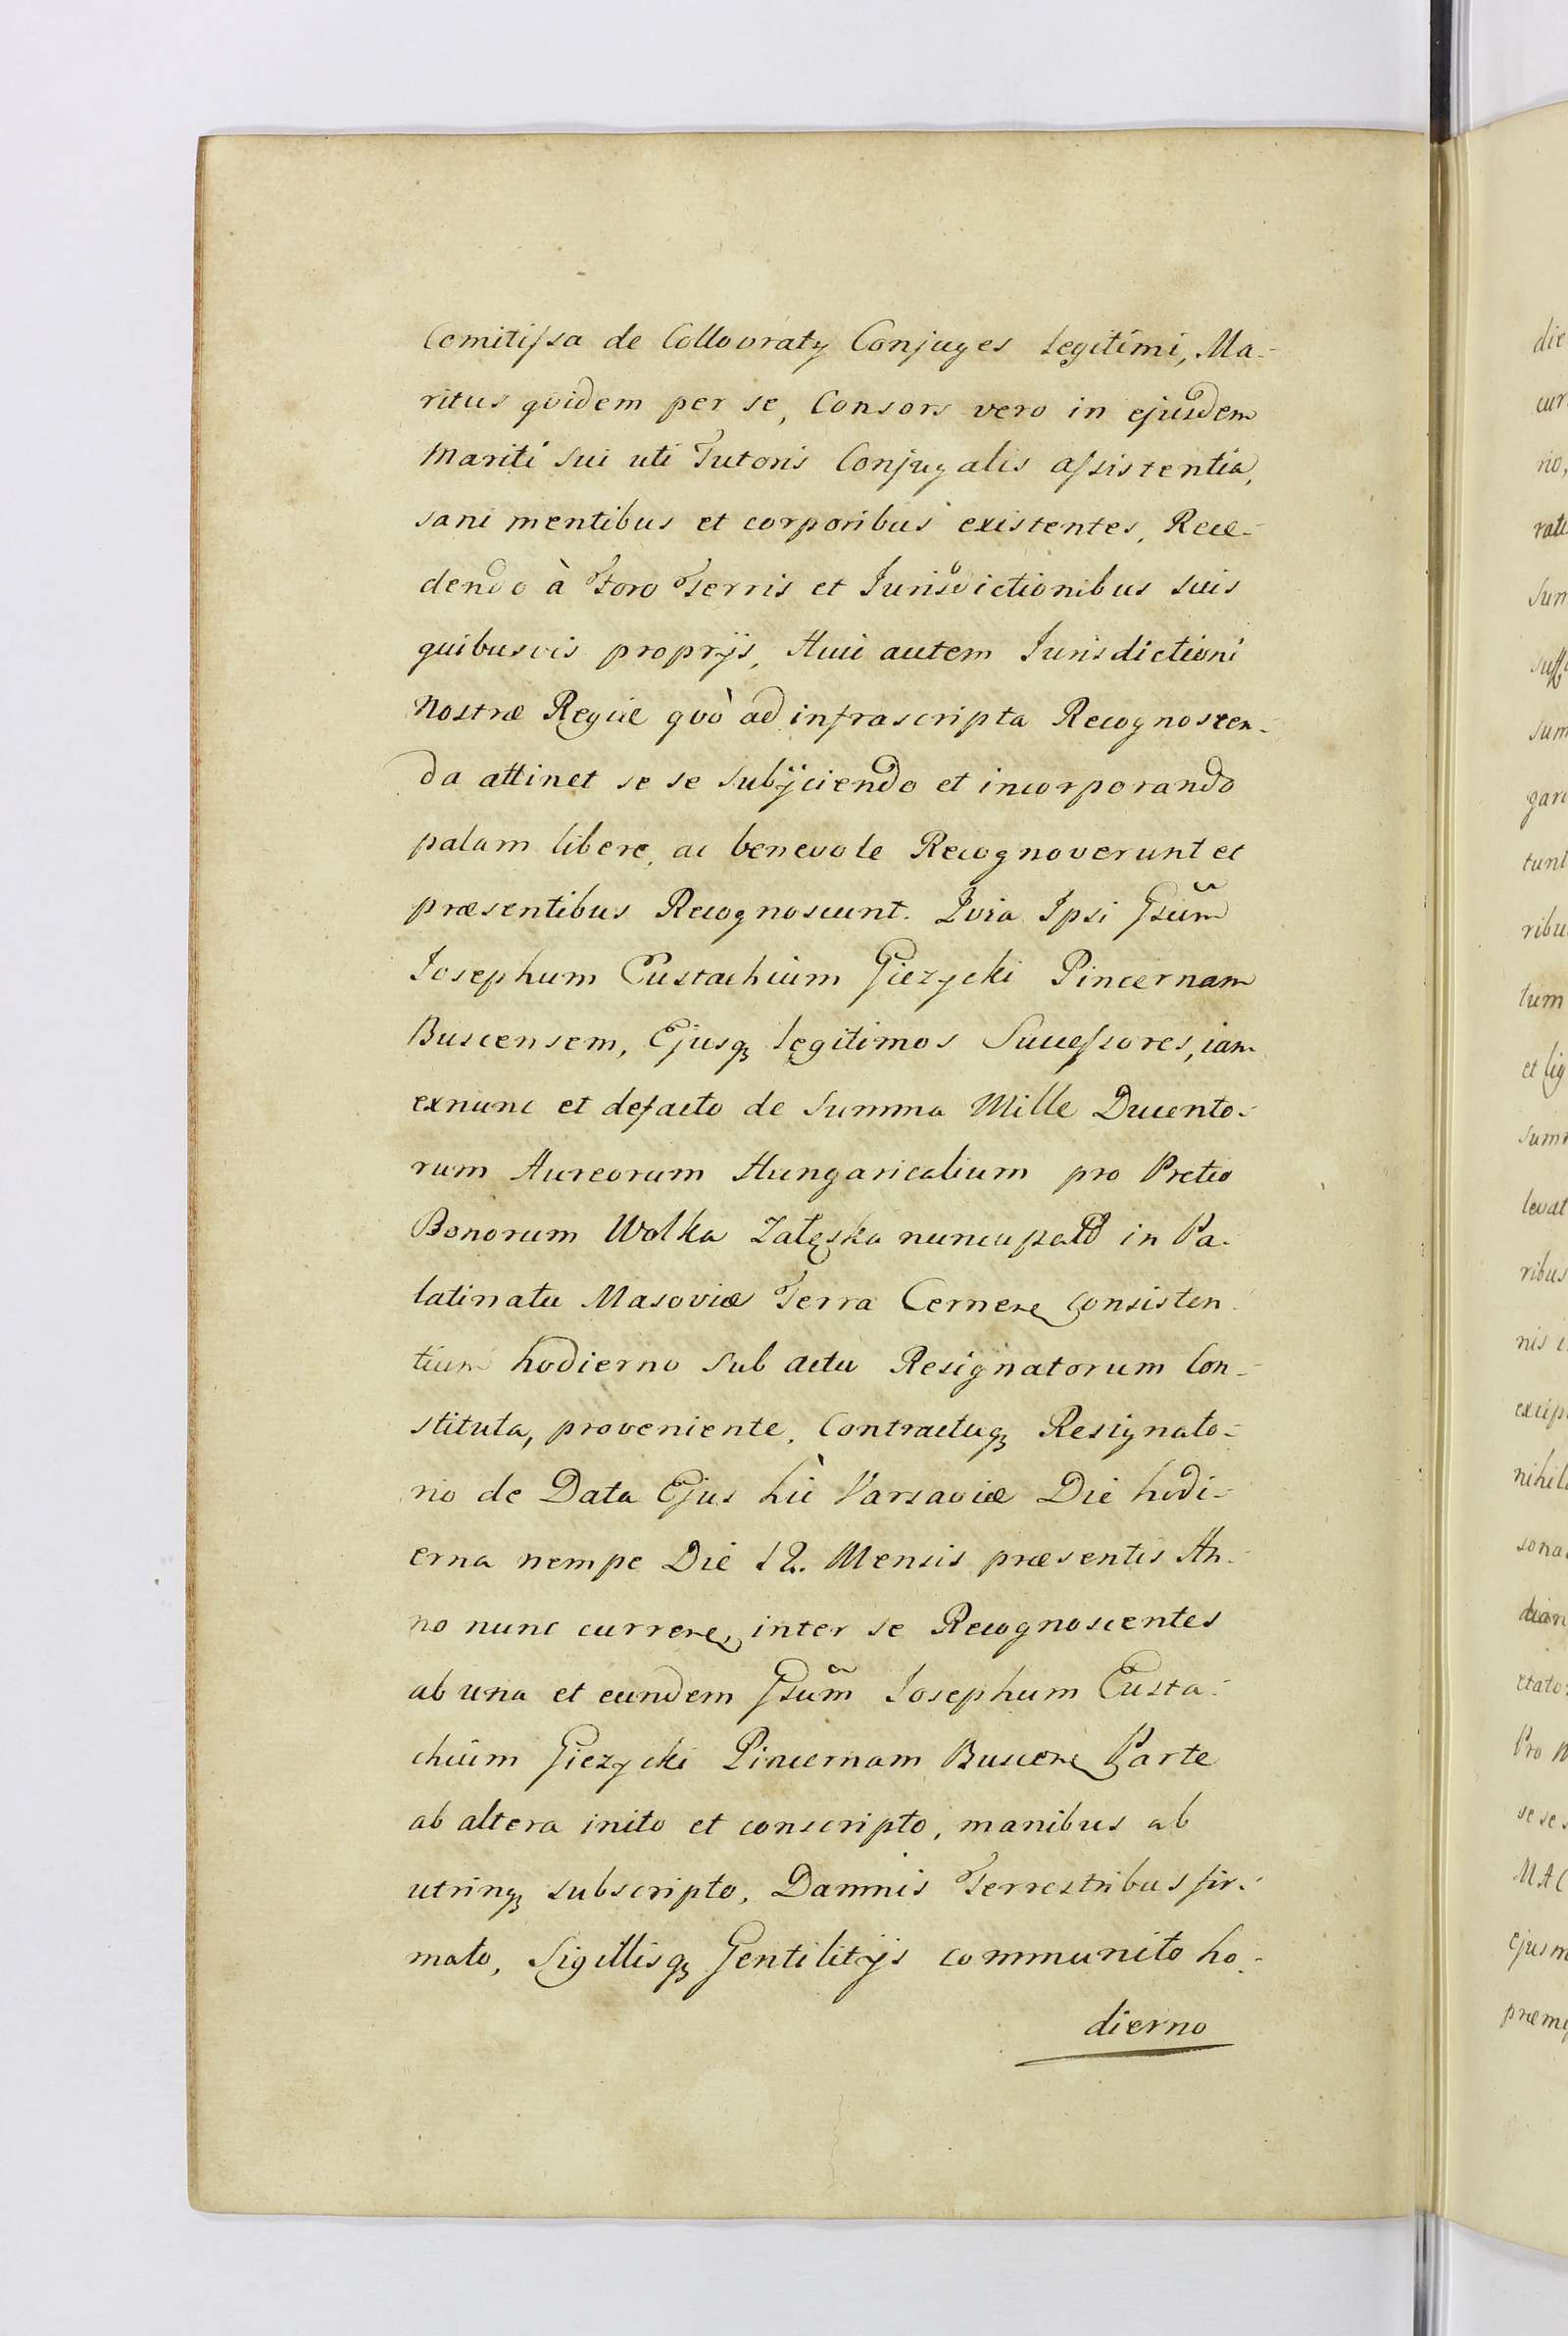 Comitiſsa de Collovraty Conjuges legitimi, Ma-
ritus qvidem per se, Consors vero in ejusdem
Mariti sui uti Tutoris Conjugalis aſsistentia,
sani mentibus et corporibus existentes, Rece-
dendo à Foro Terris et Jurisdictionibus suis
quibusvis proprijs, Huic autem Jurisdictioni
Nostræ Regiæ qvò ad infrascripta Recognoscen-
da attinet se se subÿciendo et incorporando
palam libere, ac benevole Recognoverunt et
præsentibus Recognoscunt. Qvia Ipsi Gsum̃
Josephum Eustachium Giezycki Pincernam
Buscensem, Ejusq̨ legitimos Succeſsores, iam
exnunc et defacto de Summa Mille Ducento-
rum Aureorum Hungaricalium pro Pretio
Bonorum Wolka Załęska nuncupat in Pa-
latinatu Masoviæ Terra Cernen Consisten
tium hodierno sub actu Resignatorum Con-
stituta, proveniente, Contractuq̨ Resignato-
rio de Data Ejus hìc Varsaviæ Die hodi-
erna nempe Die 12. Mensis præsentis An-
no nunc curren, inter se Recognoscentes
ab una et eundem Gsum̃ Josephum Eusta-
chium Giezycki Pincernam Buscen Parte
ab altera inito et conscripto, manibus ab
utrinq̨ subscripto, Damnis Terrestribus fir-
mato, Sigillisq̨ Gentilitÿs communito ho-
dierno